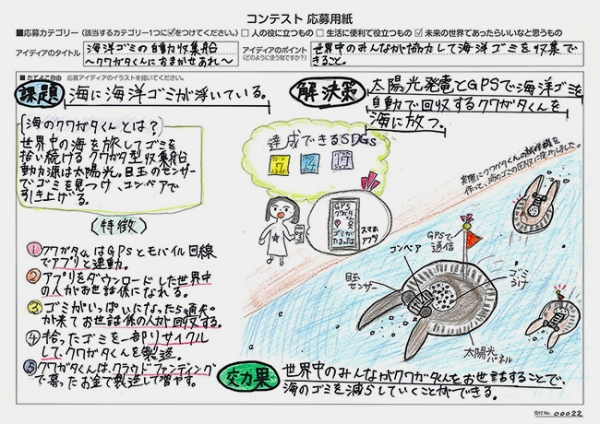 コンテスト 応募用紙
■応募カテゴリー(該当するカテゴリー1つに☑をつけてください。) □ 人の役に立つもの □ 生活に便利で役立つもの ☑ 未来の世界であったらいいなと思うもの
アイディアのタイトル
海洋ゴミの自動収集船
〜クワガタくんにおまかせあれ〜
アイディアのポイント
(どのように使う物ですか?)
世界中のみんなが協力して海洋ゴミを収集で
きること。
応募アイディアのイラストを描いてください。
課題
海に海洋ゴミが浮いている。
解決策
太陽光発電とGPSで海洋ゴミを
自動で回収するクワガタくんを
海に放つ。
(海のクワガタくんとは?)
世界中の海を旅してゴミを
拾い続けるクワガタ型収集船
動力源は太陽光。目玉のセンサー
でゴミを見つけ、コンベアで
引き上げる。
達成できるSDGs
7
14
17
GPS
クワガタ
ゴミが
たまったよ
スマホ
アプリ
(特徴)
① クワガタくんはGPSとモバイル回線
でアプリと連動。
② アプリをダウンロードした世界中
の人がお世話係になれる。
③ ゴミがいっぱいになったら通知
が来てお世話係の人が回収する。
④ 拾ったゴミを一部リサイクル
して、クワガタくんを製造。
⑤ クワガタくんは、クラウドファンディング
で募ったお金で製造して増やす。
実際にクワガタくんの試作機を
GPSで
通信
コンベア
目玉
センサー
ゴミ
うけ
太陽光
パネル
効果
世界中のみんながクワガタくんをお世話することで、
海のゴミを減らしていくことができる。
受付No. 00022